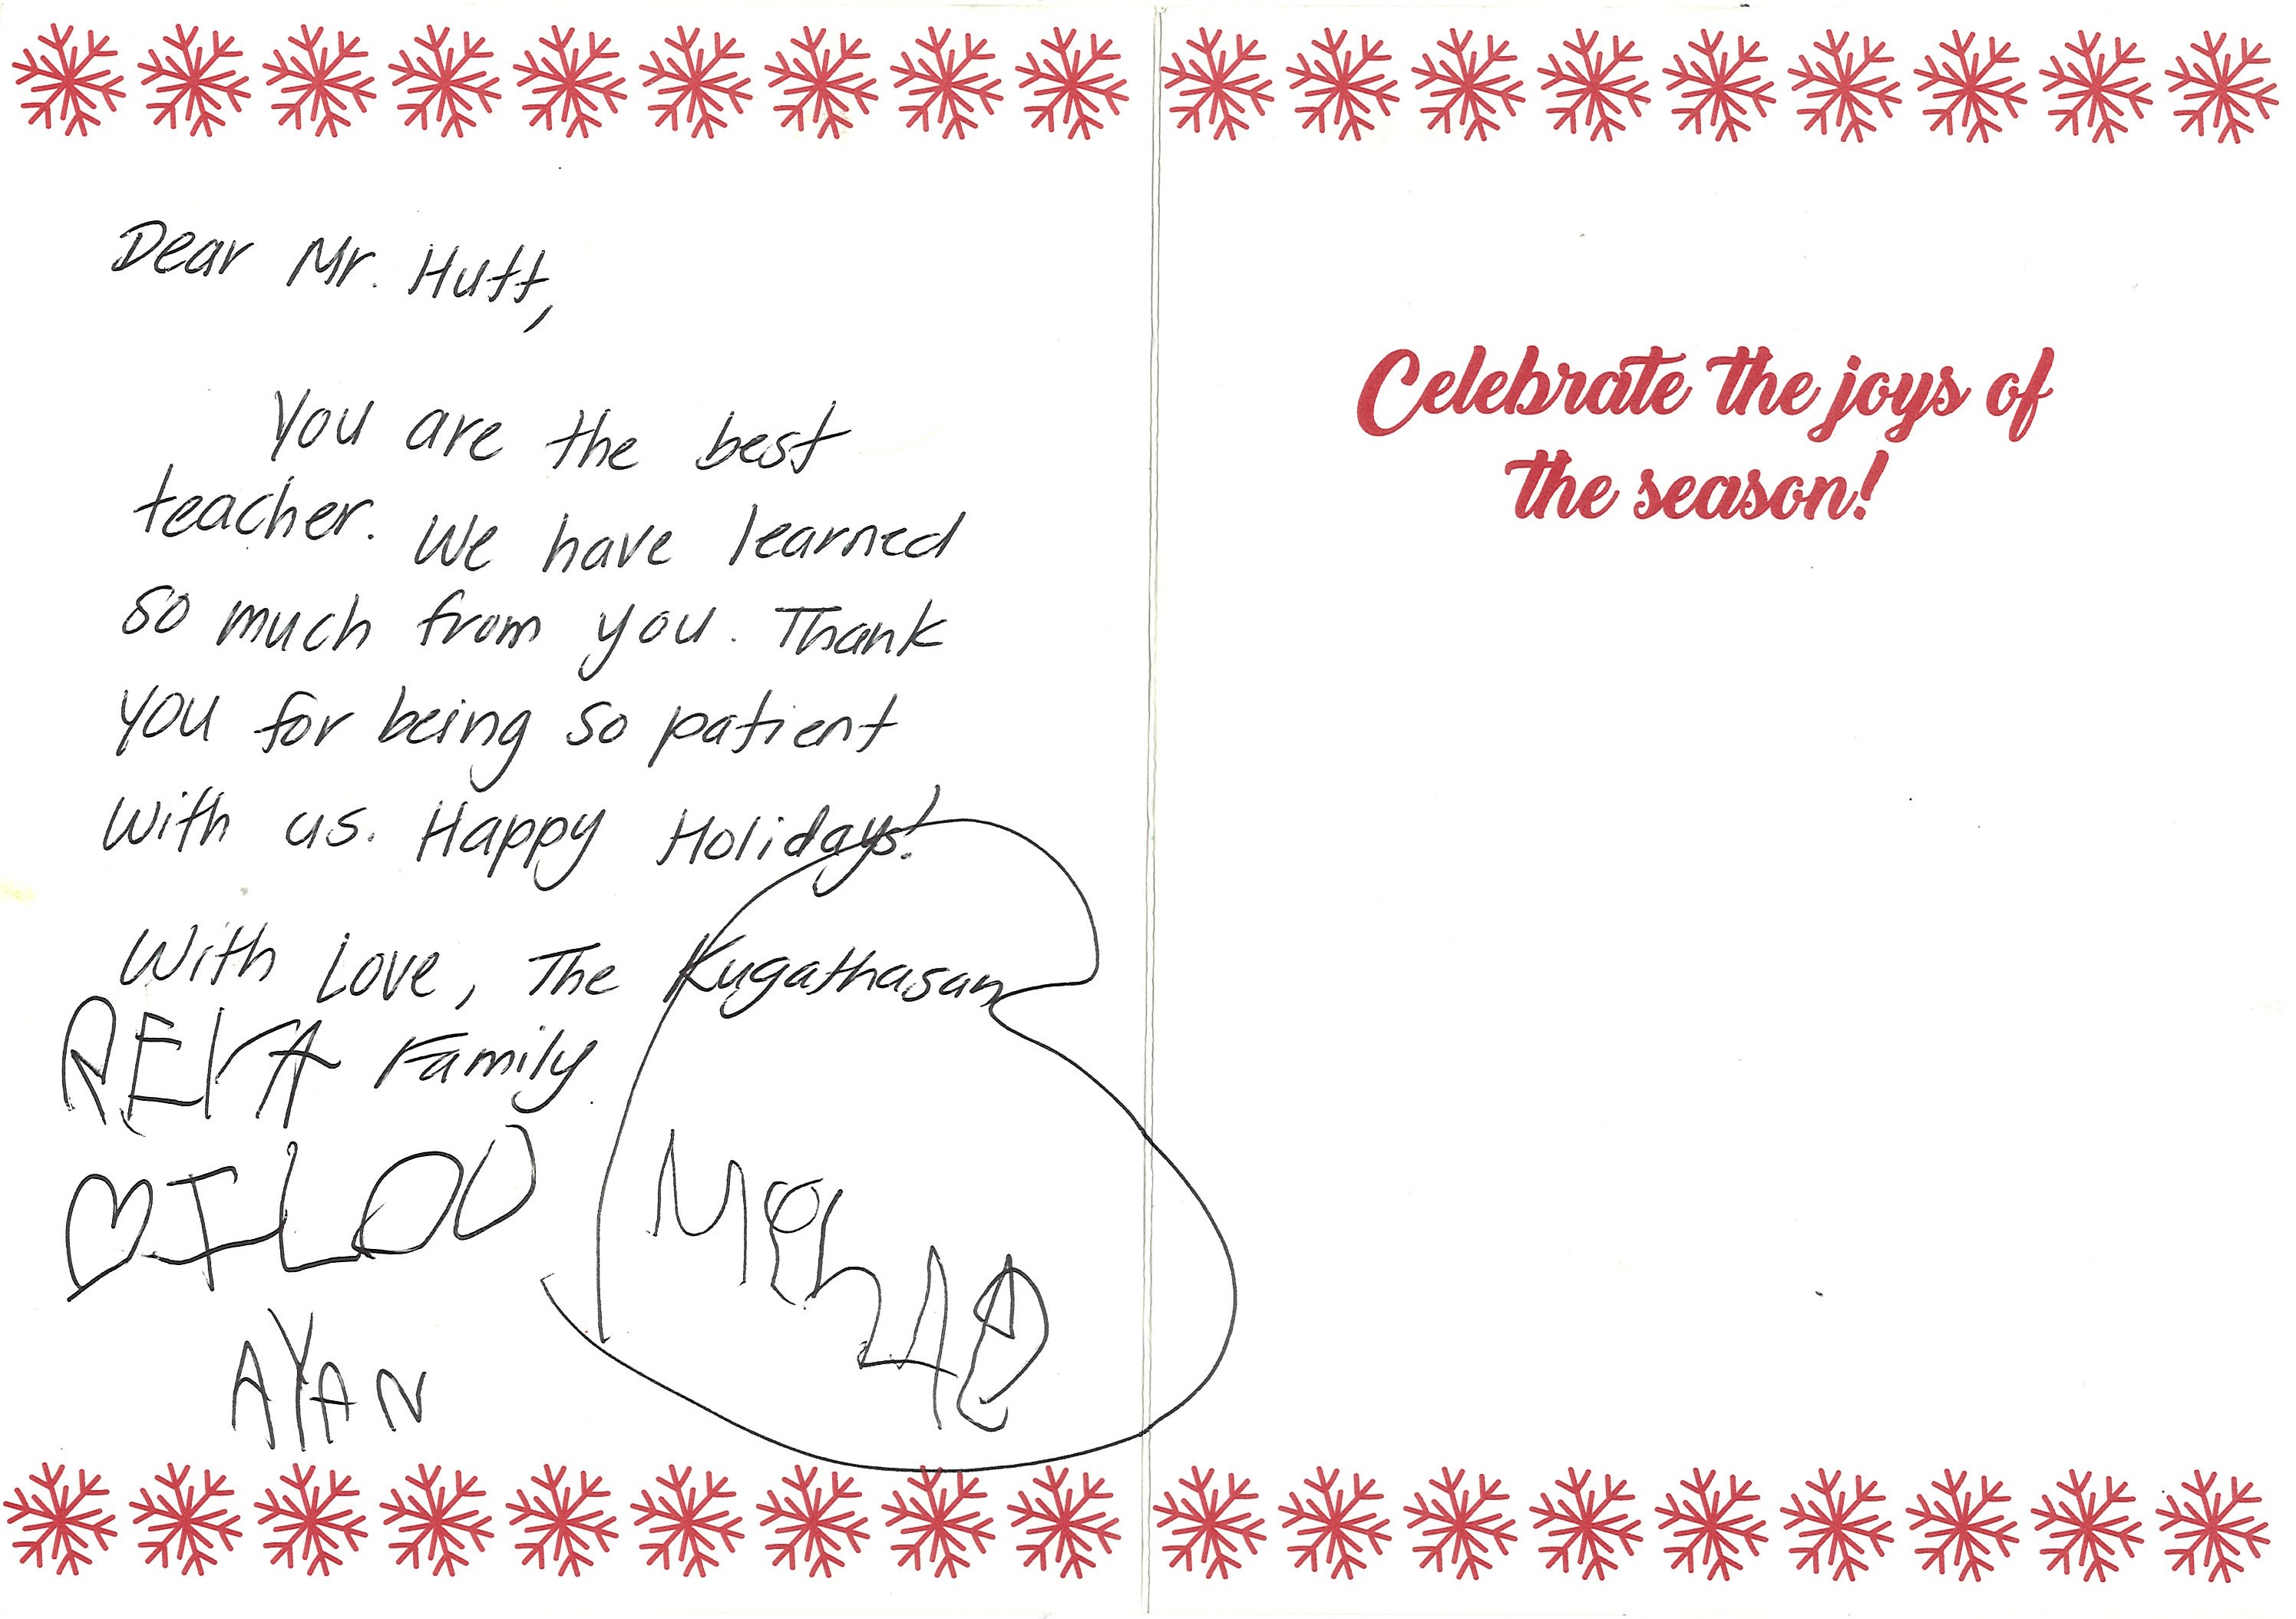 Dear Mr. Hutt,
You are the best
teacher. We have learned
so much from you. Thank
you for being so patient
with us. Happy Holidays!
With Love, The Kugathasan
Family
AYAN
Celebrate the joys of
the season!